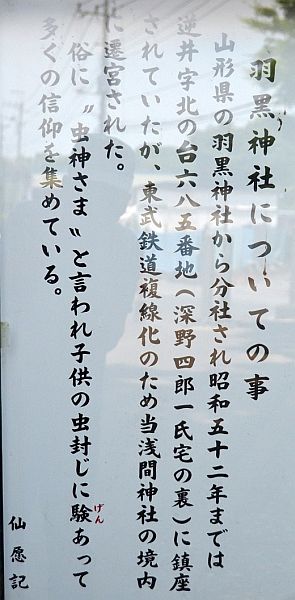 羽黒神社についての事
山形県の羽黒神社から分社され昭和五十二年までは
逆井字北の台六八五番地(深野四郎一氏宅の裏)に鎮座
されていたが、東武鉄道複線化のため当浅間神社の境内
に遷宮された。
俗に〝虫神さま〟と言われ子供の虫封じに験あって
げん
多くの信仰を集めている。
仙愿記